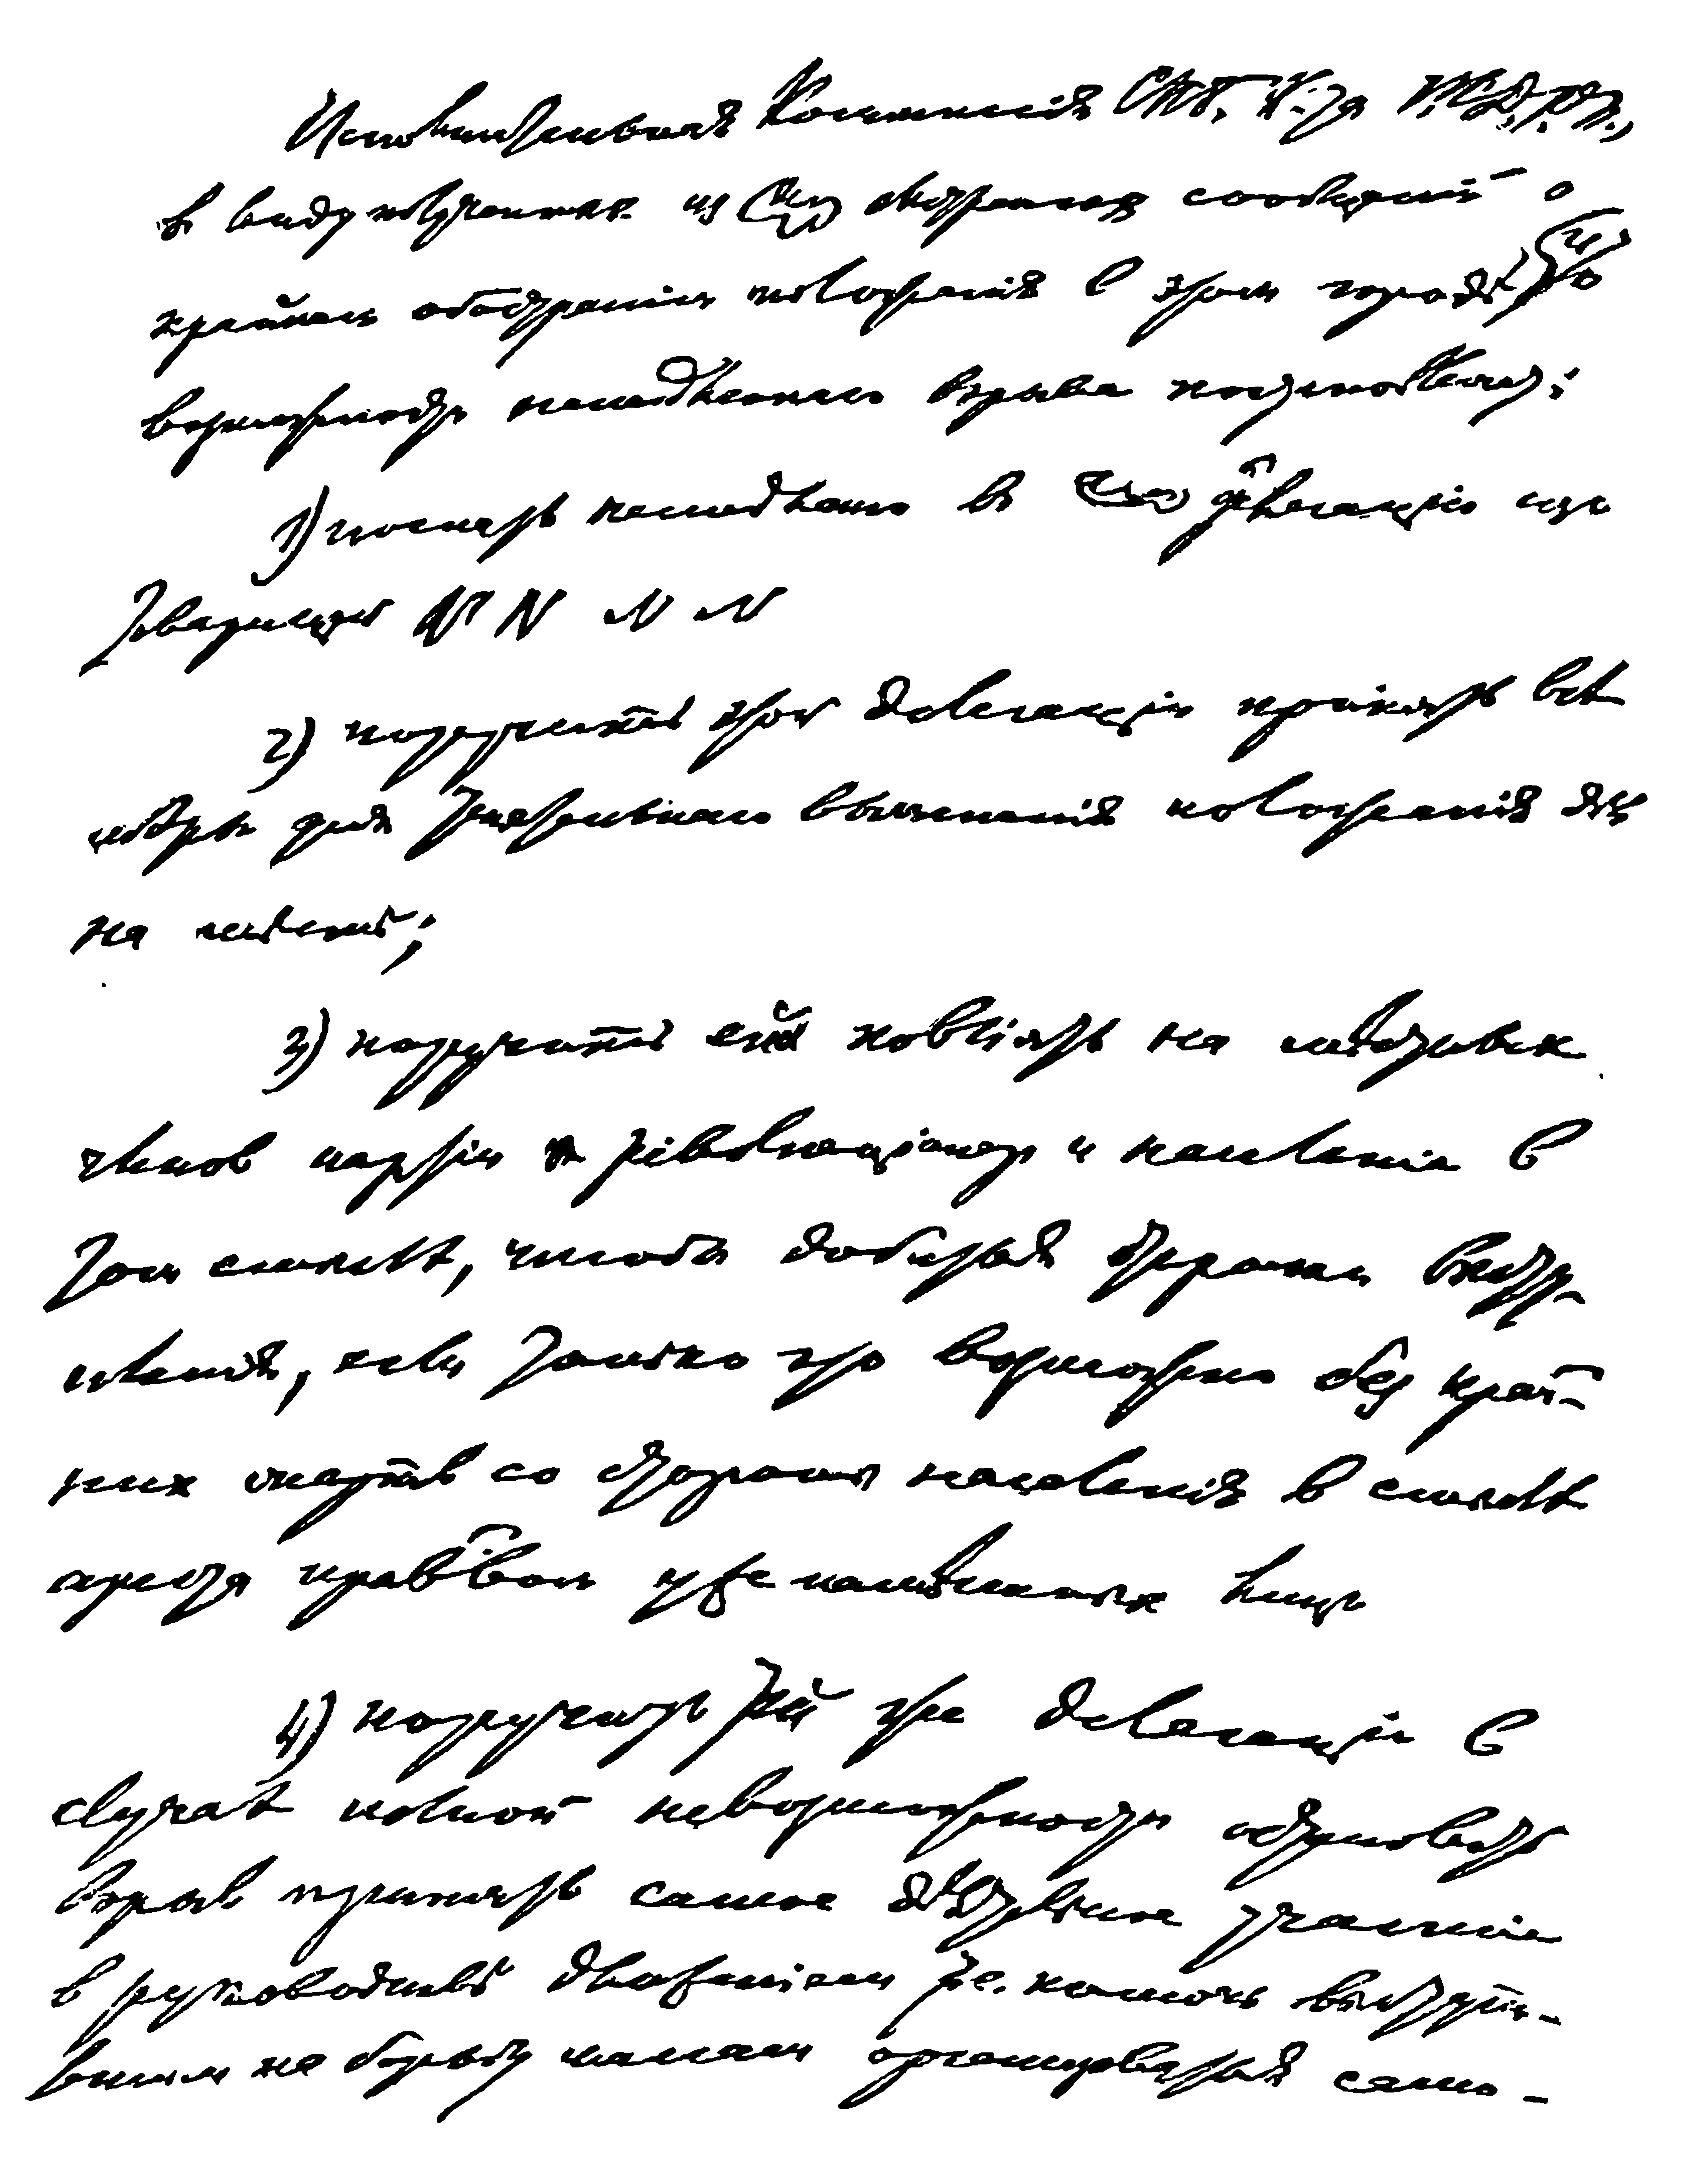 Исполнительная Комиссія СПБ. К-та Р.С.Д.Р.П.,
в виду полученных из экстренных сообщеній о
крайнем обостреніи положенія в этом городѣ и о
возможности немедленного взрыва постановляет:
1) послать немедленно в делегацію из
товарищей N N N N
2) поручить этой делегаціи принять всѣ
мѣры для тщательного выясненія положенія дѣл
на мѣстѣ;
3) поручить ей повліять на мѣстных
членов партіи революціонер. и населеніе в
том смыслѣ, чтобы добиться отсрочки высту-
пленія, если только это возможно без край-
них жертв со стороны населенія в смыслѣ
ареста прав-вом уже намѣченных лиц
4) поручить той же делегаціи в
случаѣ полной невозможности остановить
взрыв принять самое дѣятельное участіе
в руководствѣ движеніем т.е. помочь выступи-
вшим на борьбу массам организоваться само-